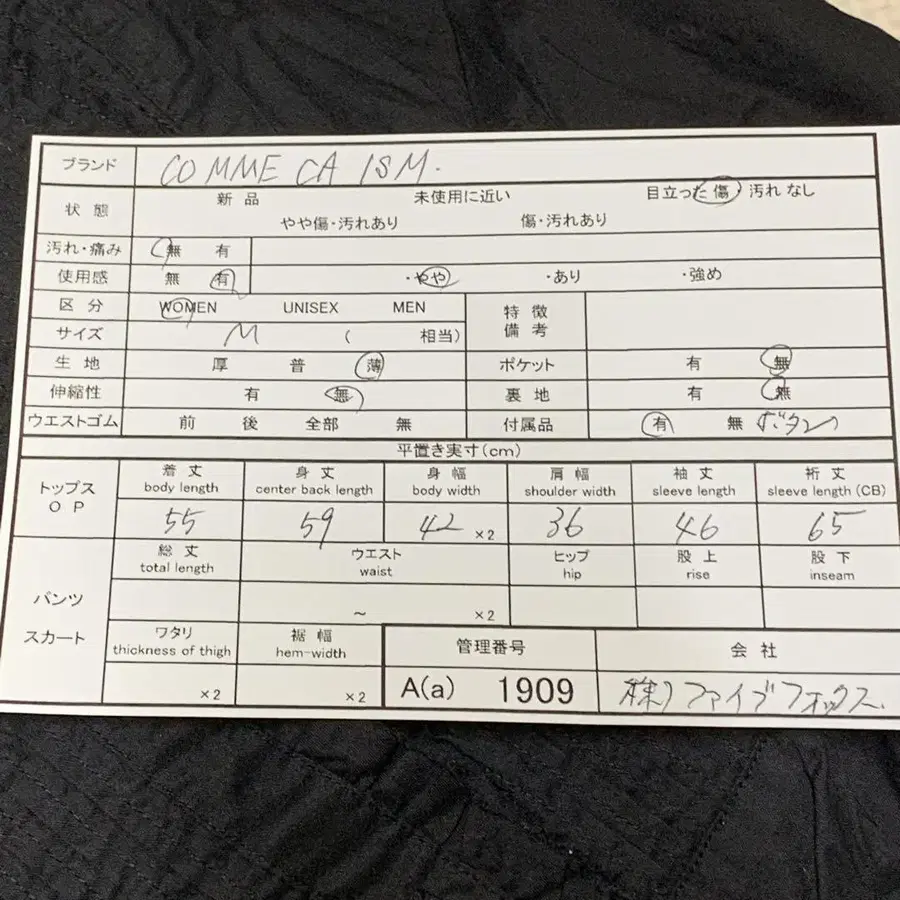 ブランド COMME CA ISM.
状態 新品 未使用に近い 目立った傷・汚れなし
やや傷・汚れあり 傷・汚れあり
汚れ・痛み 無 有
使用感 無 有 ・やや ・あり ・強め
区分 WOMEN UNISEX MEN 特徴
備考
サイズ M ( 相当)
生地 厚 普 薄 ポケット 有 無
伸縮性 有 無 裏地 有 無
ウエストゴム 前 後 全部 無 付属品 有 無 ボタン
平置き実寸(cm)
トップス
OP
着丈 身丈 身幅 肩幅 袖丈 裄丈
body length center back length body width shoulder width sleeve length sleeve length (CB)
55 59 42 ×2 36 46 65
パンツ
スカート
総丈 ウエスト ヒップ 股上 股下
total length waist hip rise inseam
～ ×2
ワタリ 裾幅 管理番号 会社
thickness of thigh hem-width
×2 ×2 A(a) 1909 (株)ファイブフォックス.